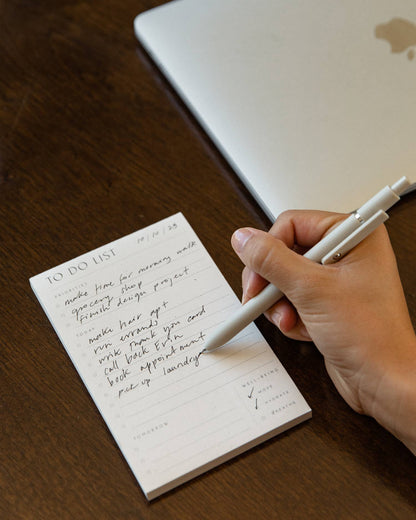 TO DO LIST
10/10/23
PRIORITIES
make time for morning walk
grocery shop
finish design project
TODAY
make hair apt
run errands
write thank you card
call back Erin
book appointment
pick up laundry
TOMORROW
WELL-BEING
MOVE
HYDRATE
BREATHE